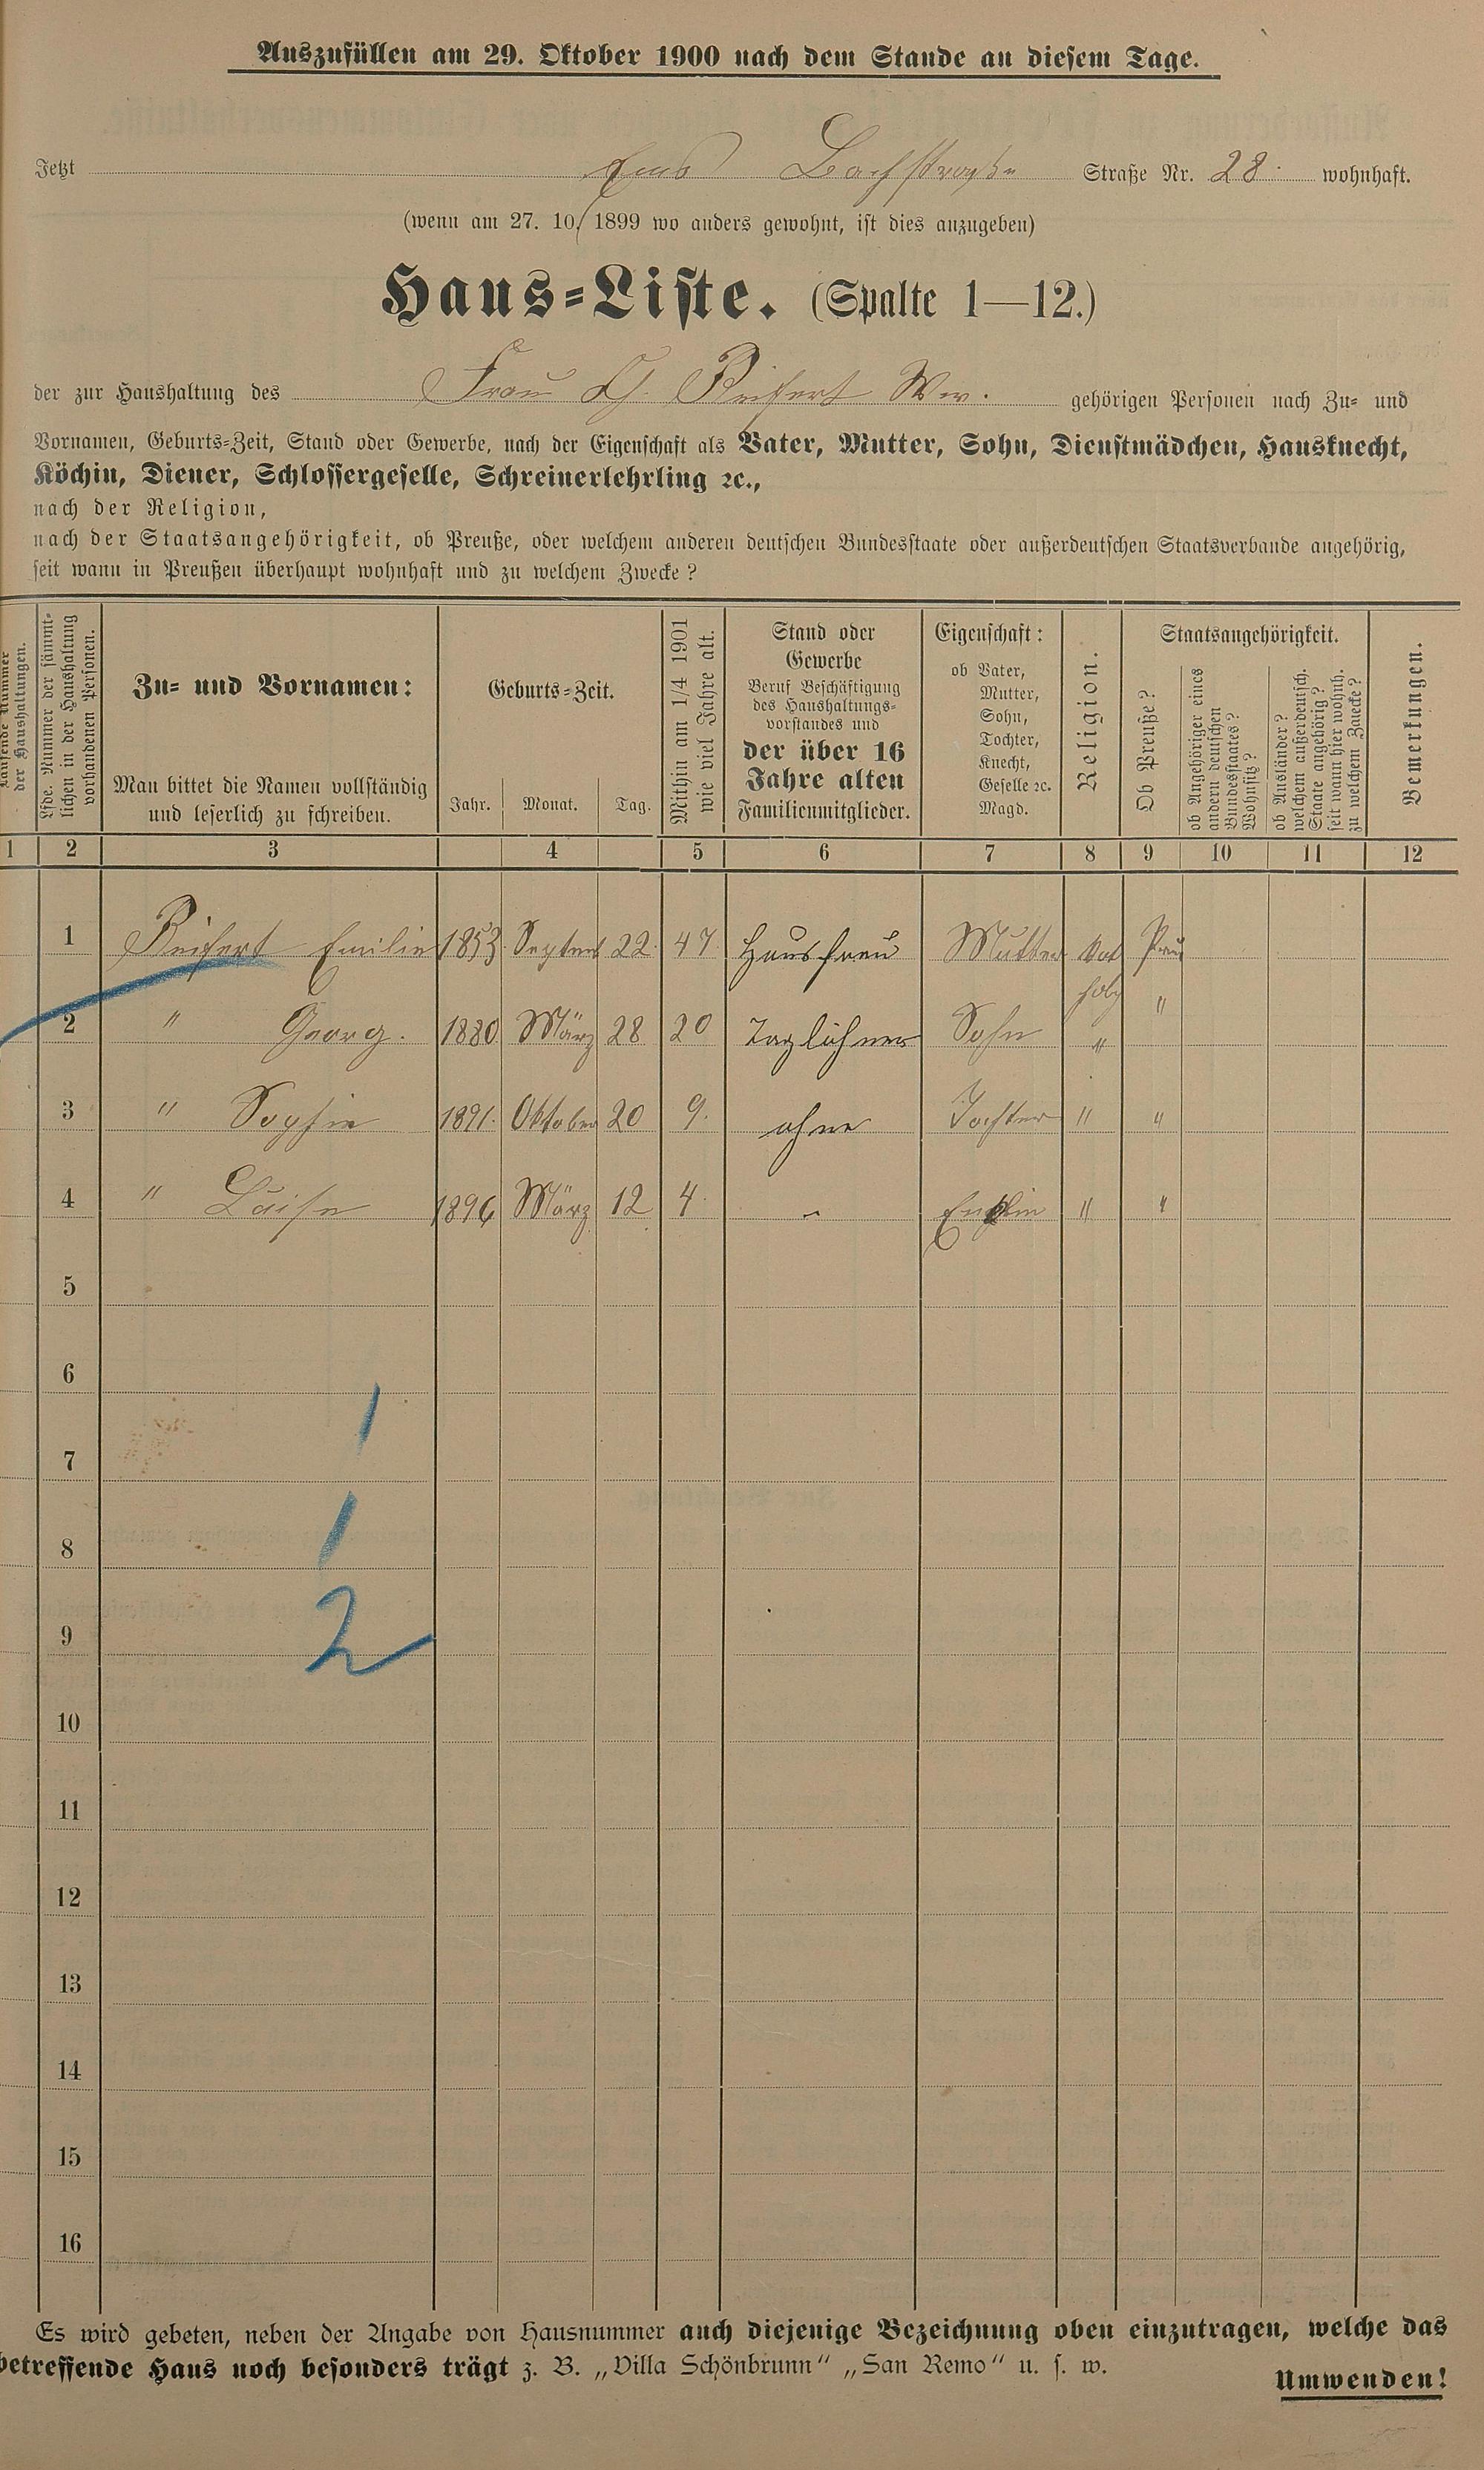 Auszufüllen am 29. Oktober 1900 nach dem Stande an diesem Tage.
Jetzt Ems Bachstraße Straße Nr. 28. wohnhaft.
(wenn am 27. 10. 1899 wo anders gewohnt, ist dies anzugeben)
Haus-Liste. (Spalte 1—12.)
der zur Haushaltung des Frau Wwe. gehörigen Personen nach Zu- und
Vornamen, Geburts-Zeit, Stand oder Gewerbe, nach der Eigenschaft als Vater, Mutter, Sohn, Dienstmädchen, Hausknecht,
Köchin, Diener, Schlossergeselle, Schreinerlehrling ꝛc.,
nach der Religion,
nach der Staatsangehörigkeit, ob Preuße, oder welchem anderen deutschen Bundesstaate oder außerdeutschen Staatsverbande angehörig,
seit wann in Preußen überhaupt wohnhaft und zu welchem Zwecke?
Laufende Nummer
der Haushaltungen.
Lfde. Nummer der sämmt-
lichen in der Haushaltung
vorhandenen Personen.
Zu- und Vornamen:
Man bittet die Namen vollständig
und leserlich zu schreiben.
Geburts-Zeit.
Jahr. Monat. Tag.
Mithin am 1/4 1901
wie viel Jahre alt.
Stand oder
Gewerbe
Beruf Beschäftigung
des Haushaltungs-
vorstandes und
der über 16
Jahre alten
Familienmitglieder.
Eigenschaft:
ob Vater,
Mutter,
Sohn,
Tochter,
Knecht,
Geselle ꝛc.
Magd.
Religion.
Staatsangehörigkeit.
Ob Preuße?
ob Angehöriger eines
andern deutschen
Bundesstaates?
Wohnsitz?
ob Ausländer?
welchem außerdeutsch.
Staate angehörig?
seit wann hier wohnh.
zu welchem Zwecke?
Bemerkungen.
1 2 3 4 5 6 7 8 9 10 11 12
1 Emilie 1853. Septemb 22. 47. Hausfrau Mutter Kat Preu
holz
2 " Georg. 1880 März 28 20 Taglöhner Sohn " "
3 " Sophie 1891. Oktober 20 9. ohne Tochter " "
4 " Luise 1896 März 12 4. " Enklin " "
5
6
1
7
1
8
2
9
10
11
12
13
14
15
16
Es wird gebeten, neben der Angabe von Hausnummer auch diejenige Bezeichnung oben einzutragen, welche das
betreffende Haus noch besonders trägt z. B. „Villa Schönbrunn“ „San Remo“ u. s. w.
Umwenden!